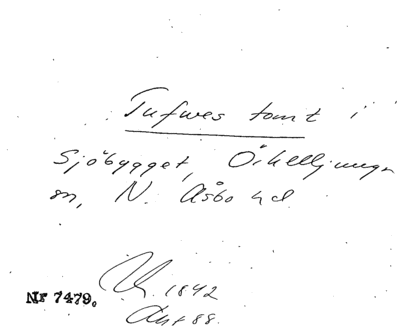 Tufwes tomt i
Sjöbygget, Örkelljunga
sn, N. Åsbo hd
1842
Nr 7479.
Akt 88.